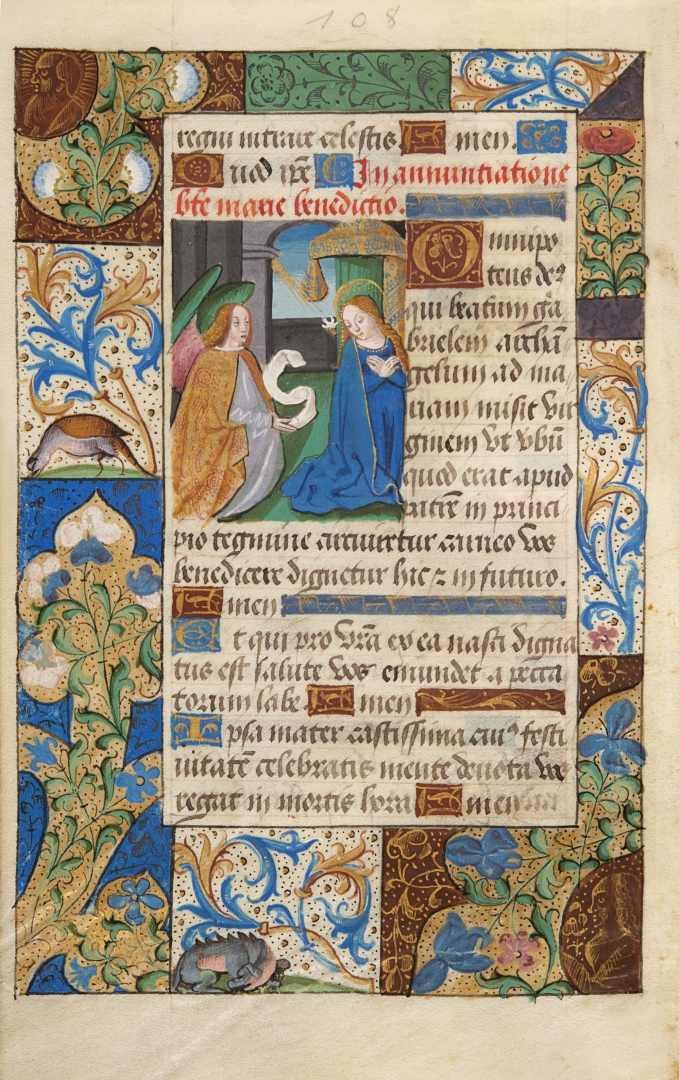 108
regni intrare celestis Amen.
Quod ip̄e In annuntiatione
bt̄e marie benedictio.
Omnipo
tens deꝰ
qui beatum ga
brielem archā
gelum ad ma
riam misit vir
ginem vt vb̄ū
quod erat apud
patrē in princi
pio tegmine arciuretur carneo vos
benedicere dignetur hic ⁊ in futuro.
Amen
Et qui pro vr̄a ex ea nasci digna
tus est salute vos emundet a pecca
torum labe. Amen
Ipsa mater castissima cuiꝰ festi
uitatē celebratis mente deuota vos
regat in mortis hora Amen